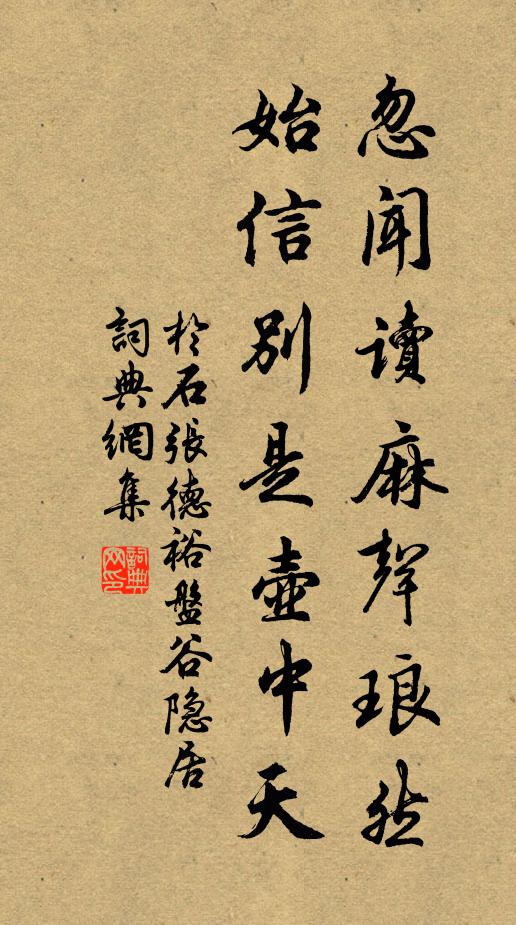 忽闻讀麻聲琅然
始信别是壺中天
於石張德裕盤谷隐居
詞典網集
詞典网印